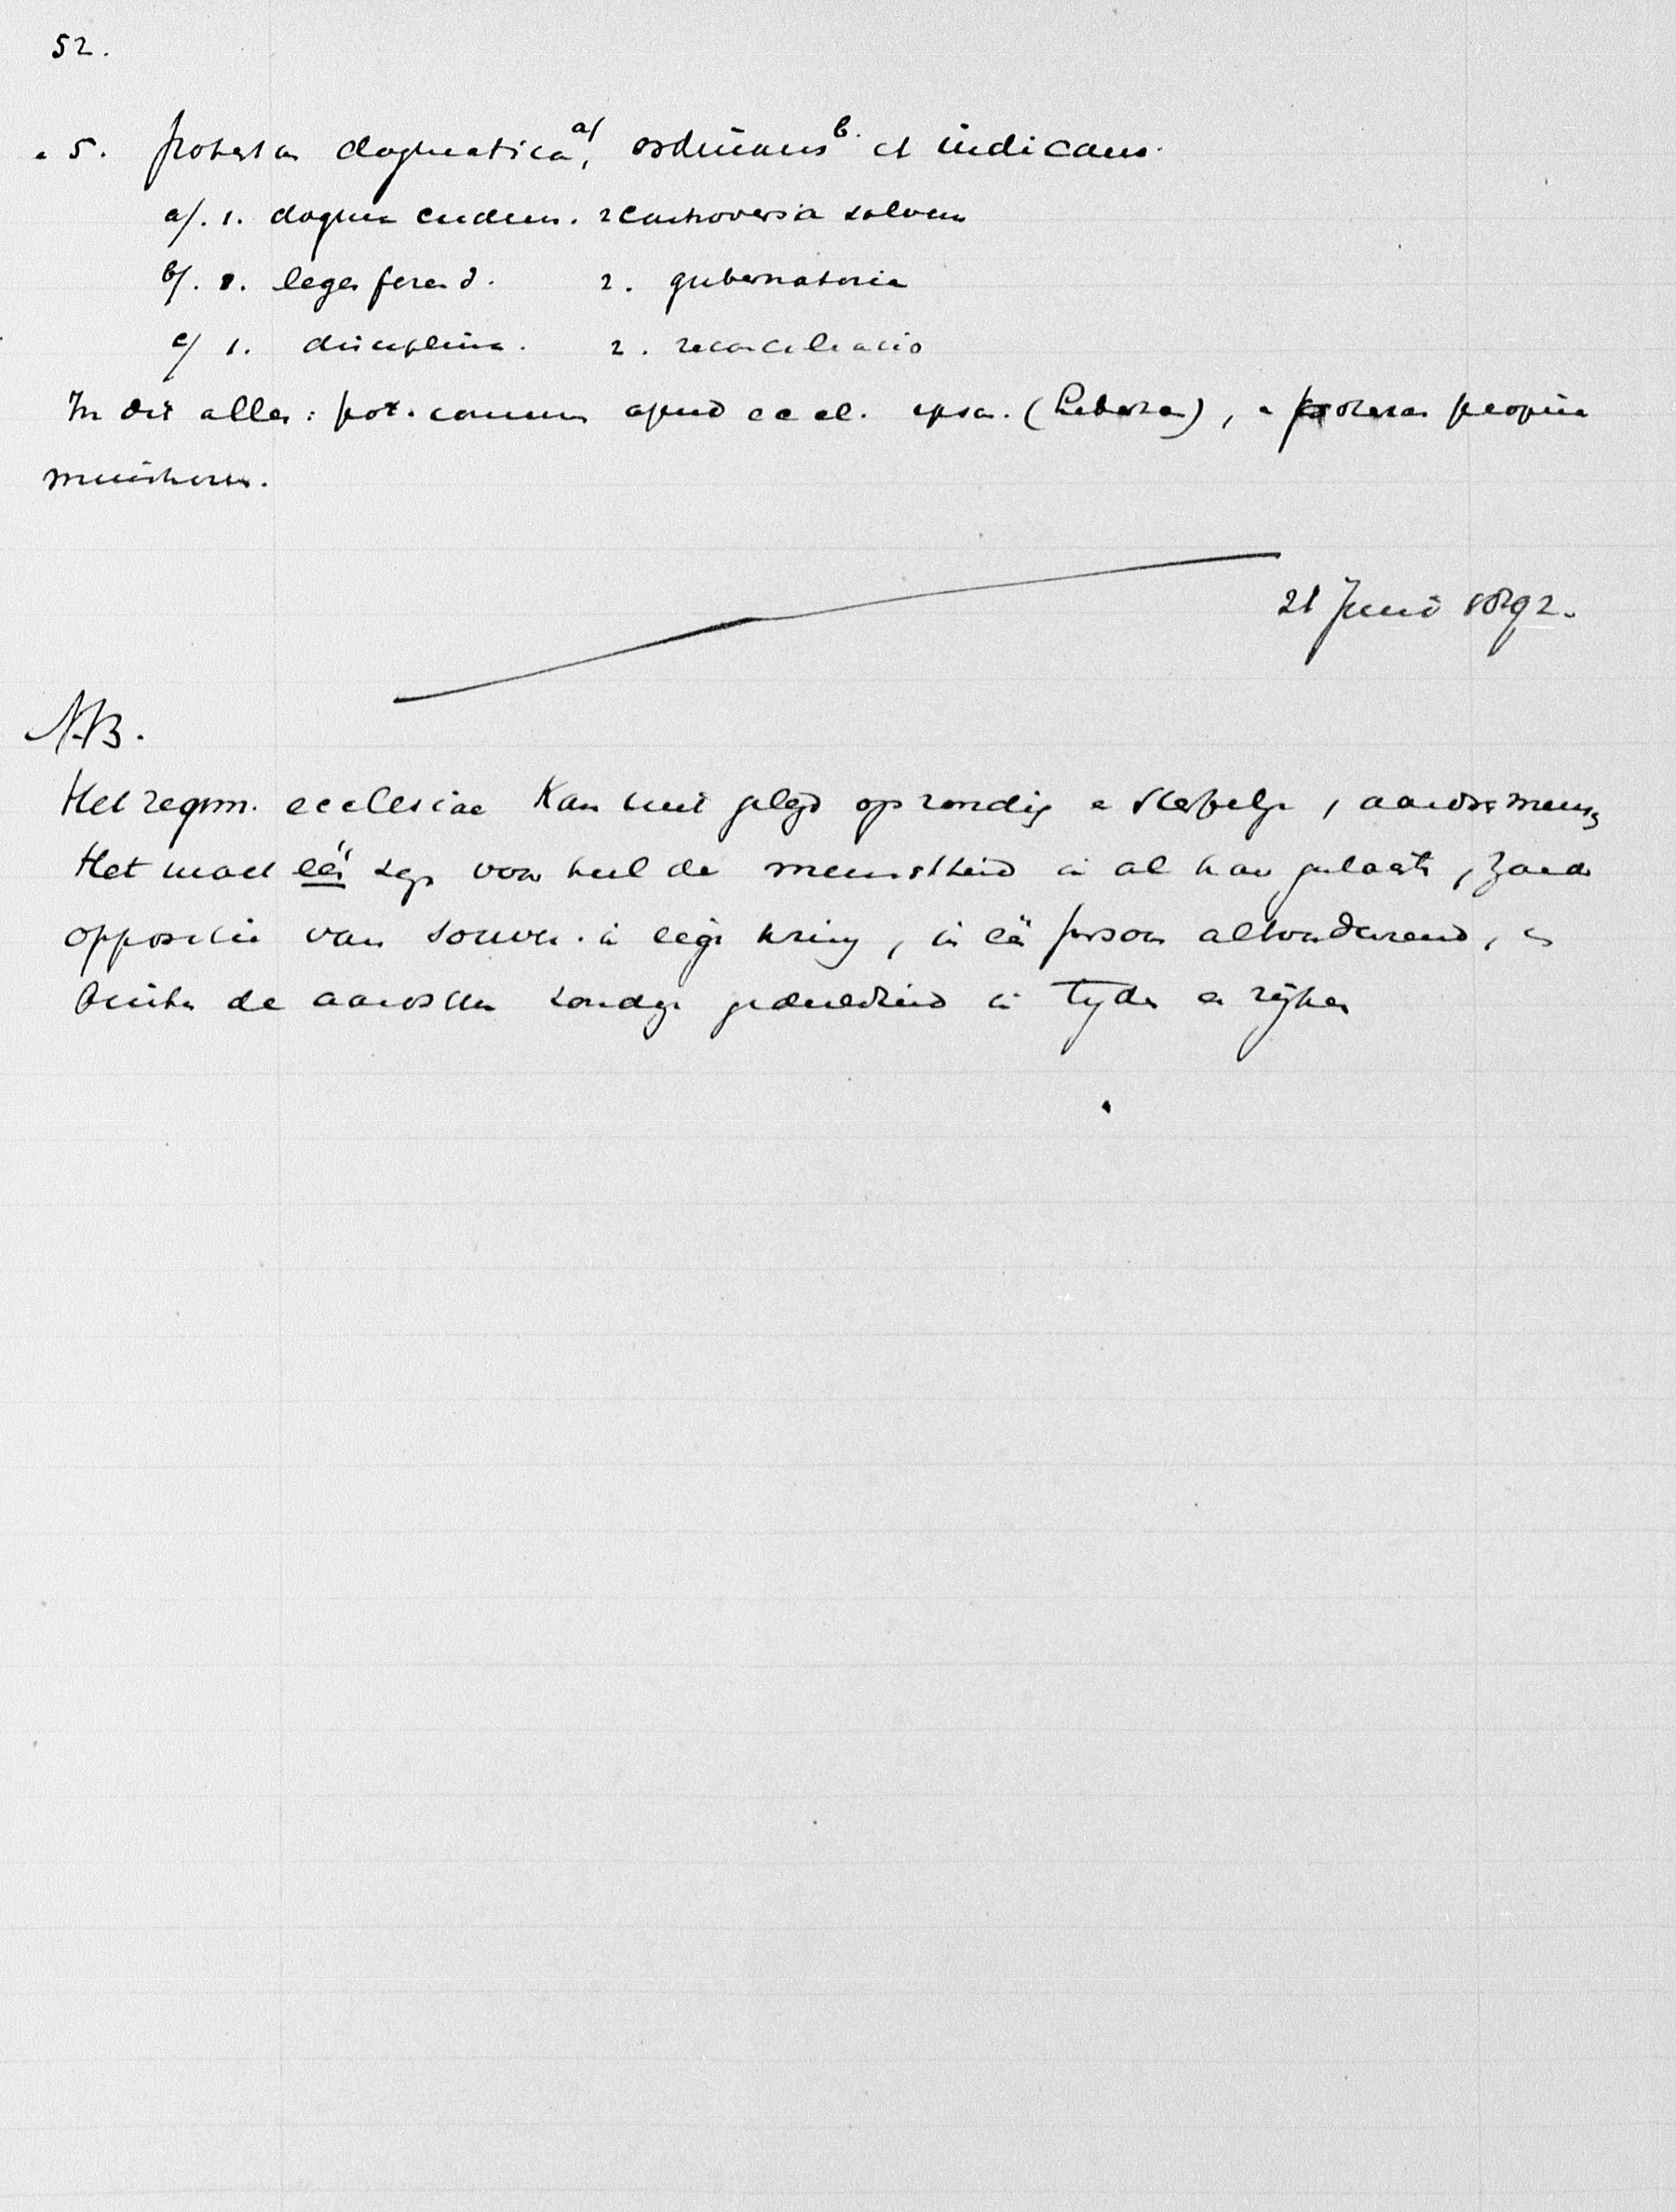 52.
5. potestas dogmatica a/, ordinans b. et iudicans.
a/. 1. dogma cudens. 2 controversia solvens
b/. 1. leges ferend. 2. gubernatoria
c/ 1. disciplina. 2. reconciliatio
In dit alles: pot. commun apud eccl. ipsa. (), potestas propria
ministrorum.
21 Juni 1892.
NB.
Het regim. ecclesiae kan niet gelegd op zondig sterfelijk, aardsch mensch
Het moet één zijn voor heel de menschheid in al haar gelaat, zonder
oppositie van souver. in eigen kring, in één persoon altoosdurend, en
buiten de aardsche zondige gedeeldheid in tijden en rijken